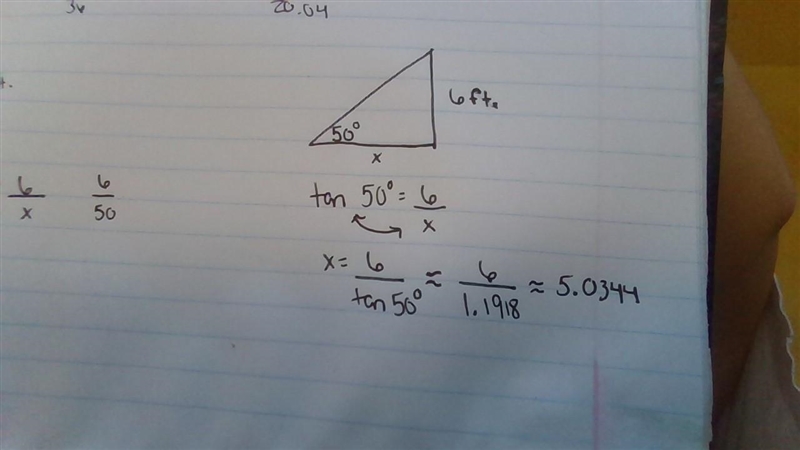 3x
20.04
t.
50°
6ft.
x
6/x 6/50
tan 50° = 6/x
x = 6/tan 50° ≈ 6/1.1918 ≈ 5.0344